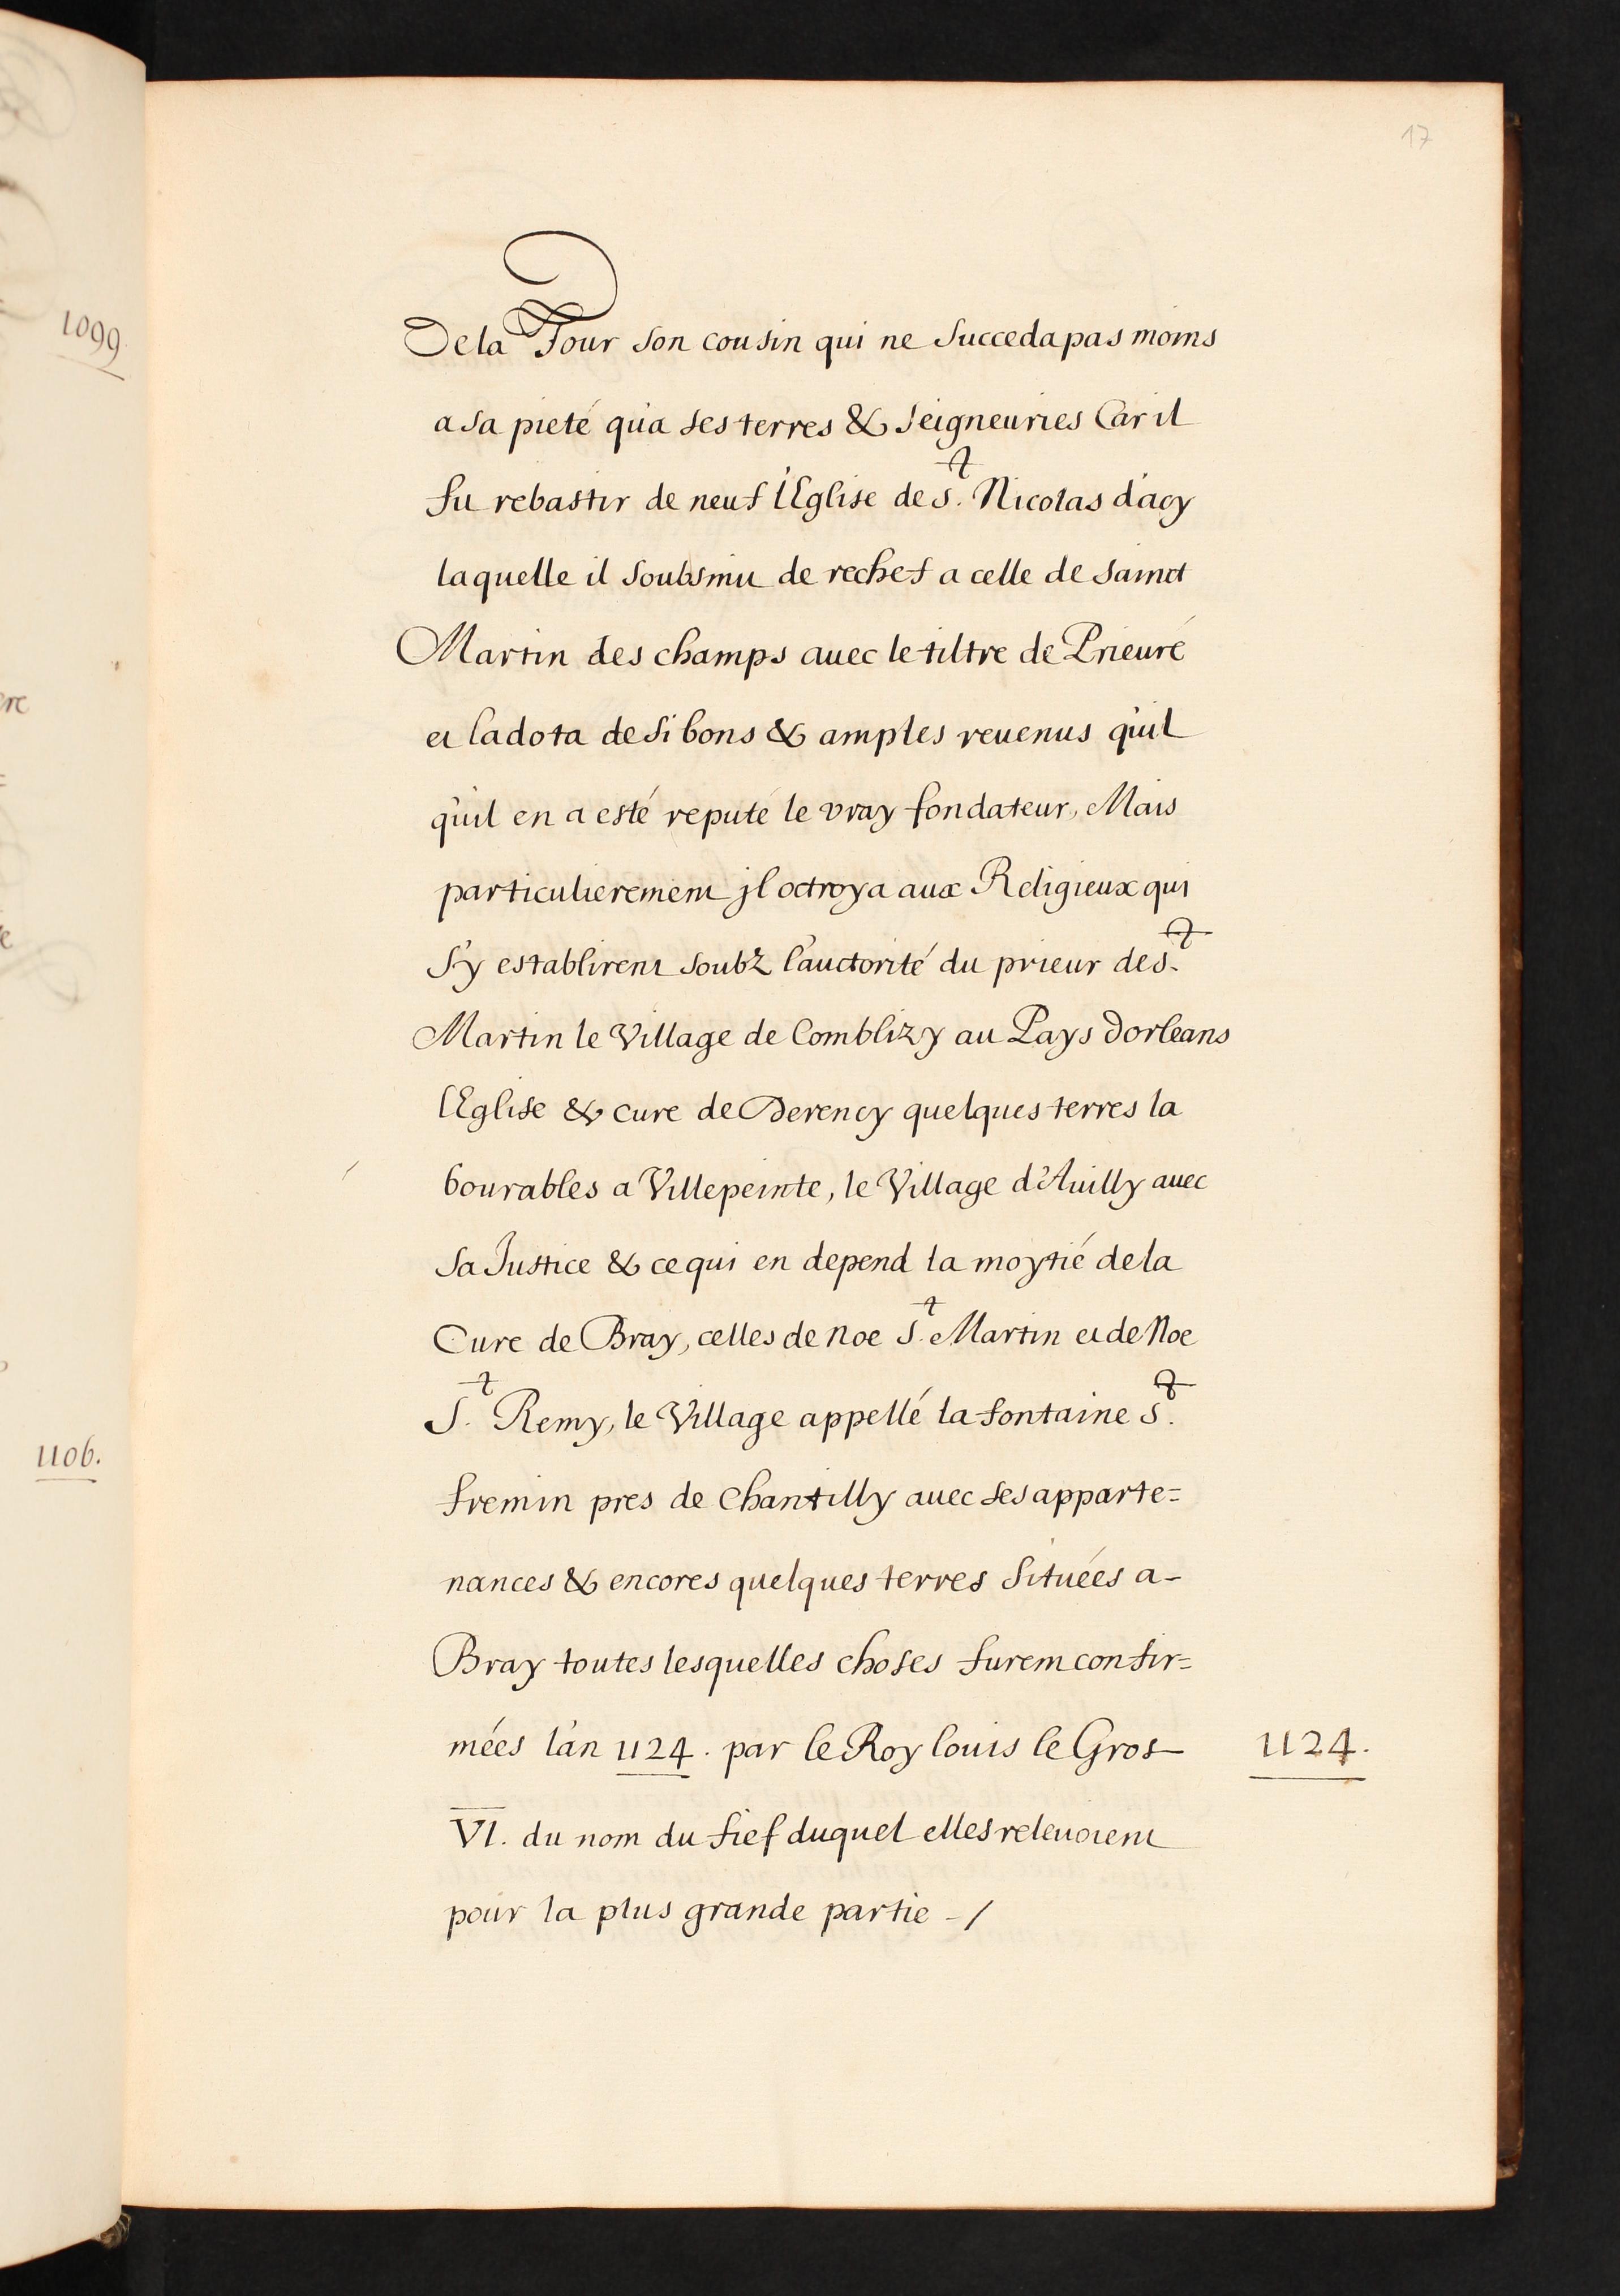 17
1099
De la Tour son cousin qui ne succeda pas moins
a sa pieté qu'a ses terres & seigneuries Car il
fit rebastir de neuf l'Eglise de S.t Nicolas d'acy
laquelle il soubsmit de rechef a celle de sainct
Martin des champs avec le tiltre de Prieuré
et la dota de si bons & amples revenus qu'il
qu'il en a esté reputé le vray fondateur, Mais
particulierement jl octroya aux Religieux qui
s'y establirent soubz l'auctorité du prieur de S.t
Martin le Village de Comblizy au Pays dorleans
l'Eglise & cure de Derency quelques terres la
bourables a Villepeinte, le Village d'Auilly auec
sa Justice & ce qui en depend la moytié de la
Cure de Bray, celles de Noe S.t Martin et de Noe
S.t Remy, le Village appellé la fontaine S.t
1106.
fremin pres de Chantilly auec ses apparte=
nances & encores quelques terres situées a-
Bray toutes lesquelles choses furent confir=
mées l'an 1124. par le Roy louis le Gros
1124.
VI. du nom du fief duquel elles releuoient
pour la plus grande partie -/